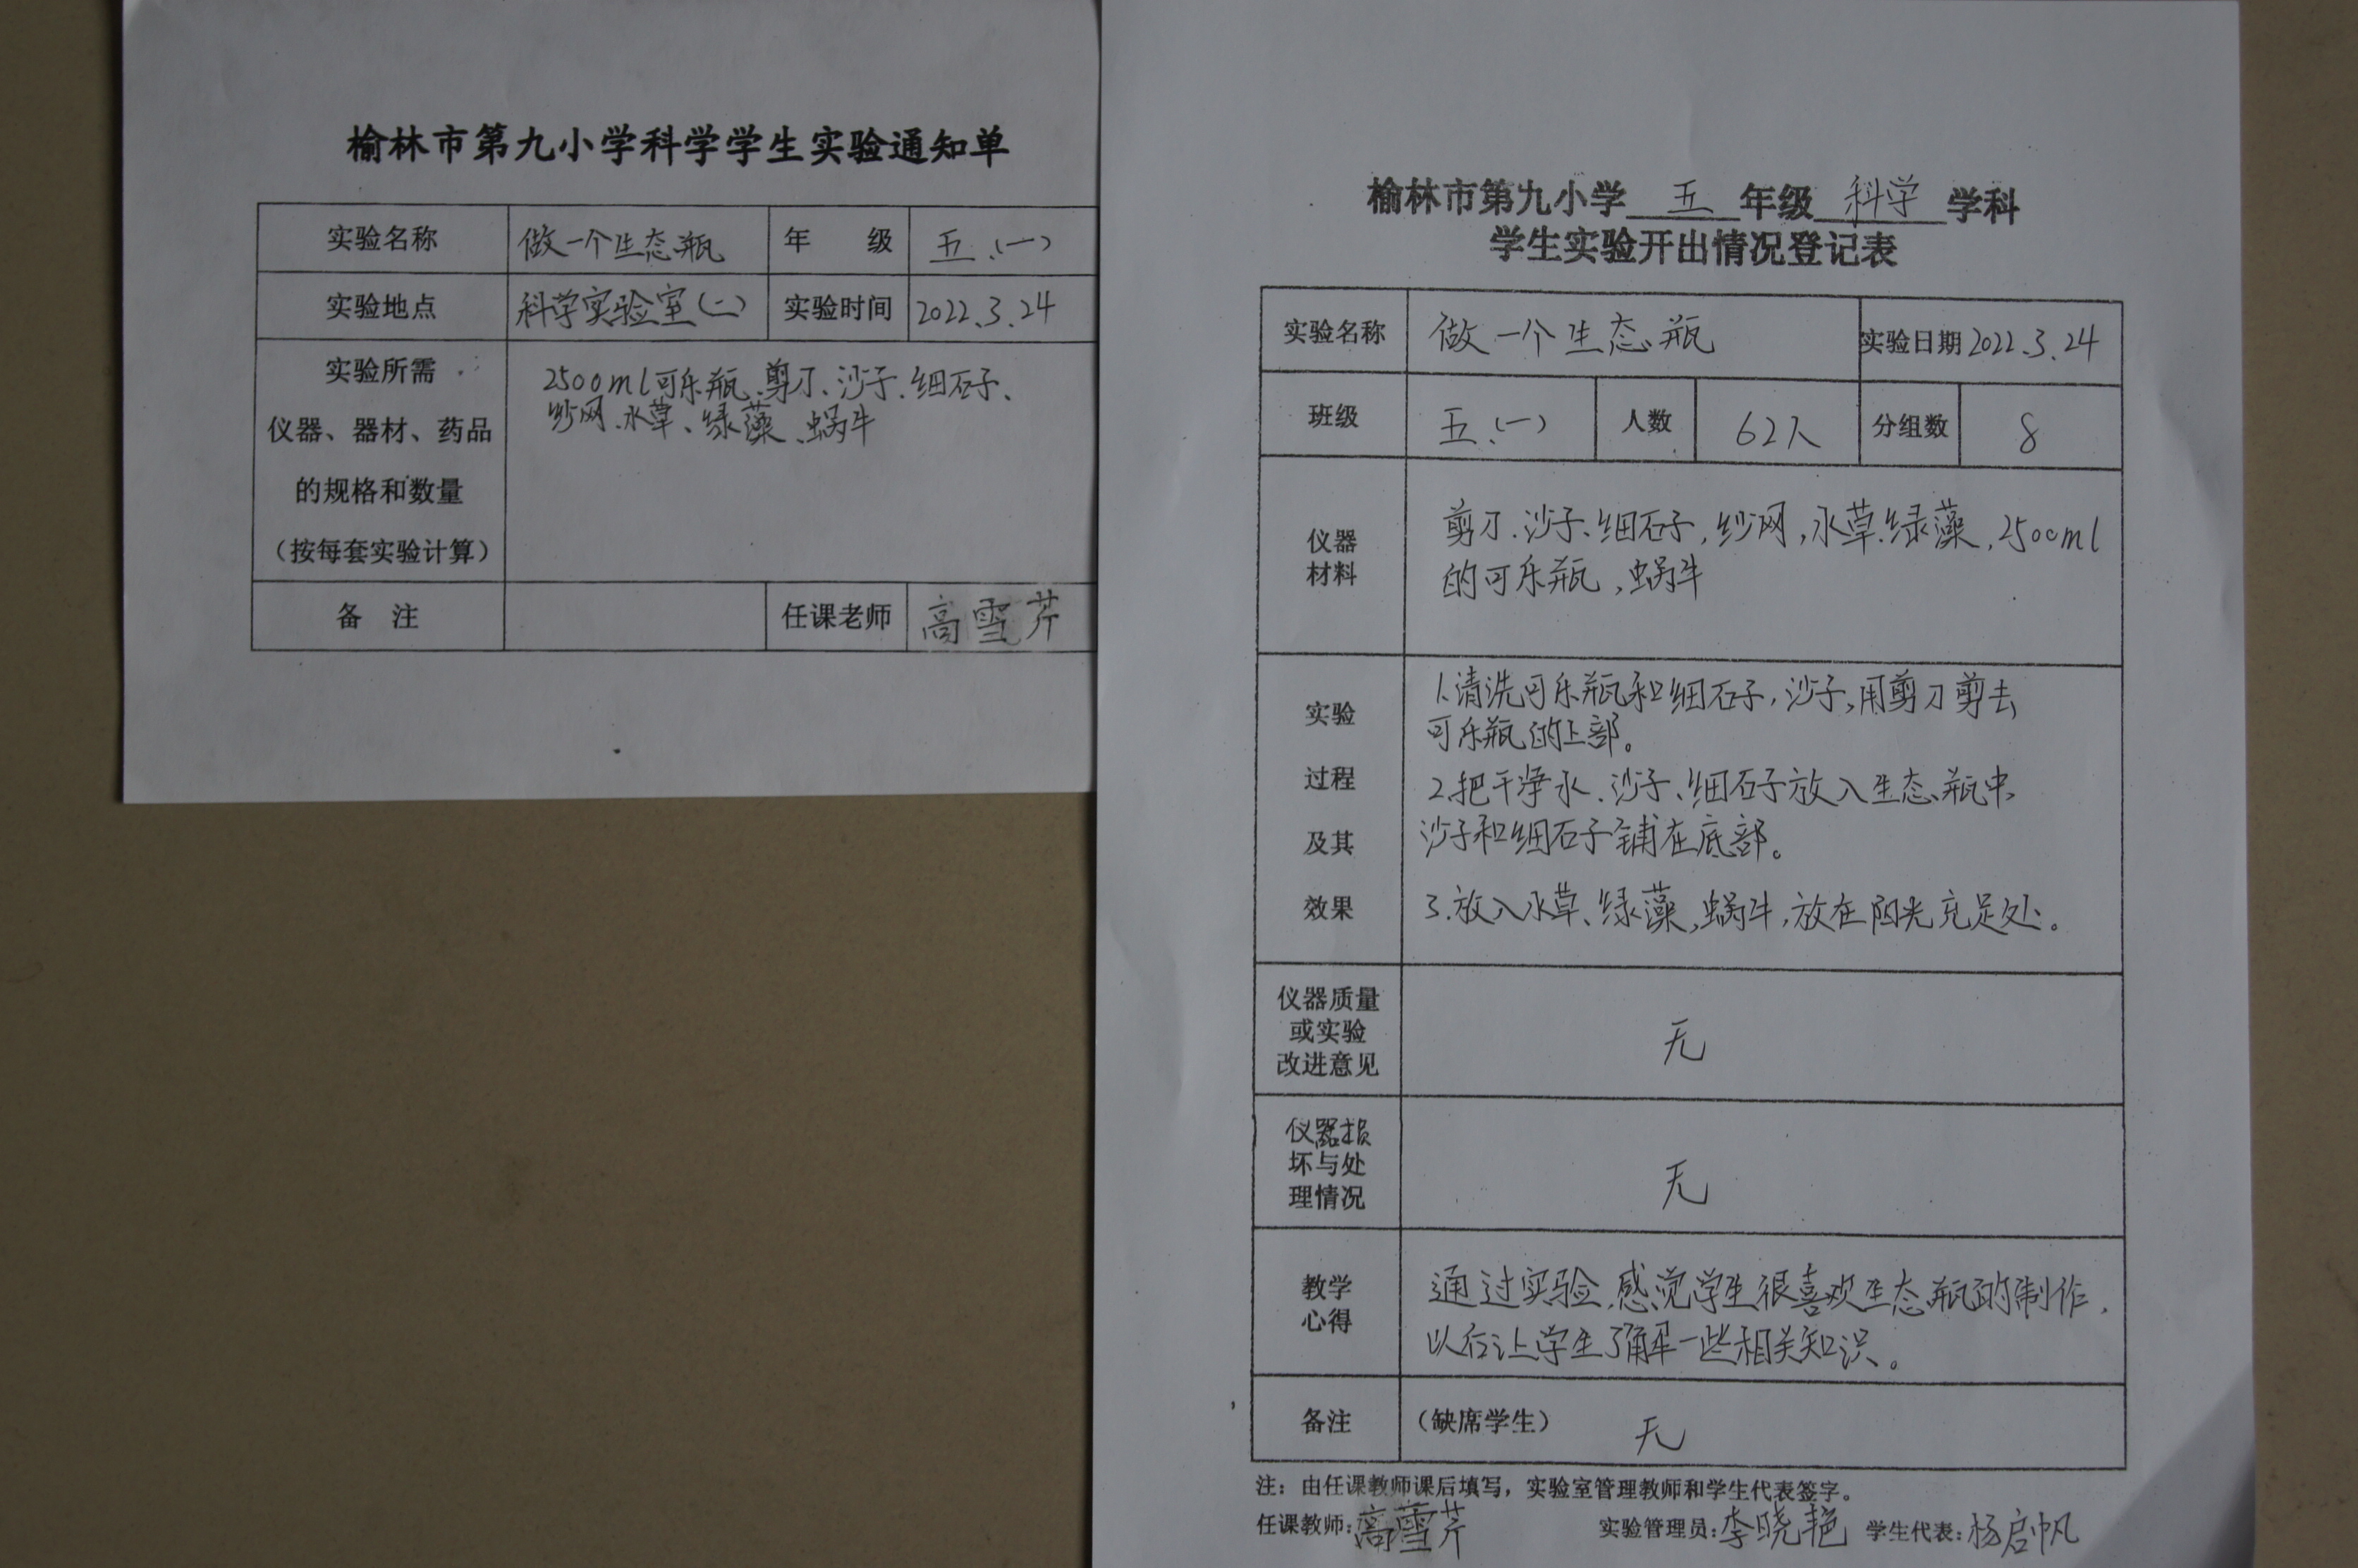 榆林市第九小学科学学生实验通知单
实验名称 做一个生态瓶 年 级 五、(一)
实验地点 科学实验室(二) 实验时间 2022.3.24
实验所需
仪器、器材、药品
的规格和数量
(按每套实验计算)
2500ml可乐瓶、剪刀、沙子、细石子、
纱网、水草、绿藻、蜗牛
备 注 任课老师 高雪芹
榆林市第九小学 五 年级 科学 学科
学生实验开出情况登记表
实验名称 做一个生态瓶 实验日期 2022.3.24
班级 五、(一) 人数 62人 分组数 8
仪器
材料
剪刀、沙子、细石子,纱网,水草、绿藻,2500ml
的可乐瓶,蜗牛
实验
过程
及其
效果
1.清洗可乐瓶和细石子,沙子,用剪刀剪去
可乐瓶的上部。
2.把干净水、沙子、细石子放入生态瓶中,
沙子和细石子铺在底部。
3.放入水草、绿藻,蜗牛,放在阳光充足处。
仪器质量
或实验
改进意见
无
仪器损
坏与处
理情况
无
教学
心得
通过实验,感觉学生很喜欢生态瓶的制作,
以后让学生了解一些相关知识。
备注 (缺席学生) 无
注：由任课教师课后填写，实验室管理教师和学生代表签字。
任课教师:高雪芹 实验管理员:李晓艳 学生代表:杨启帆